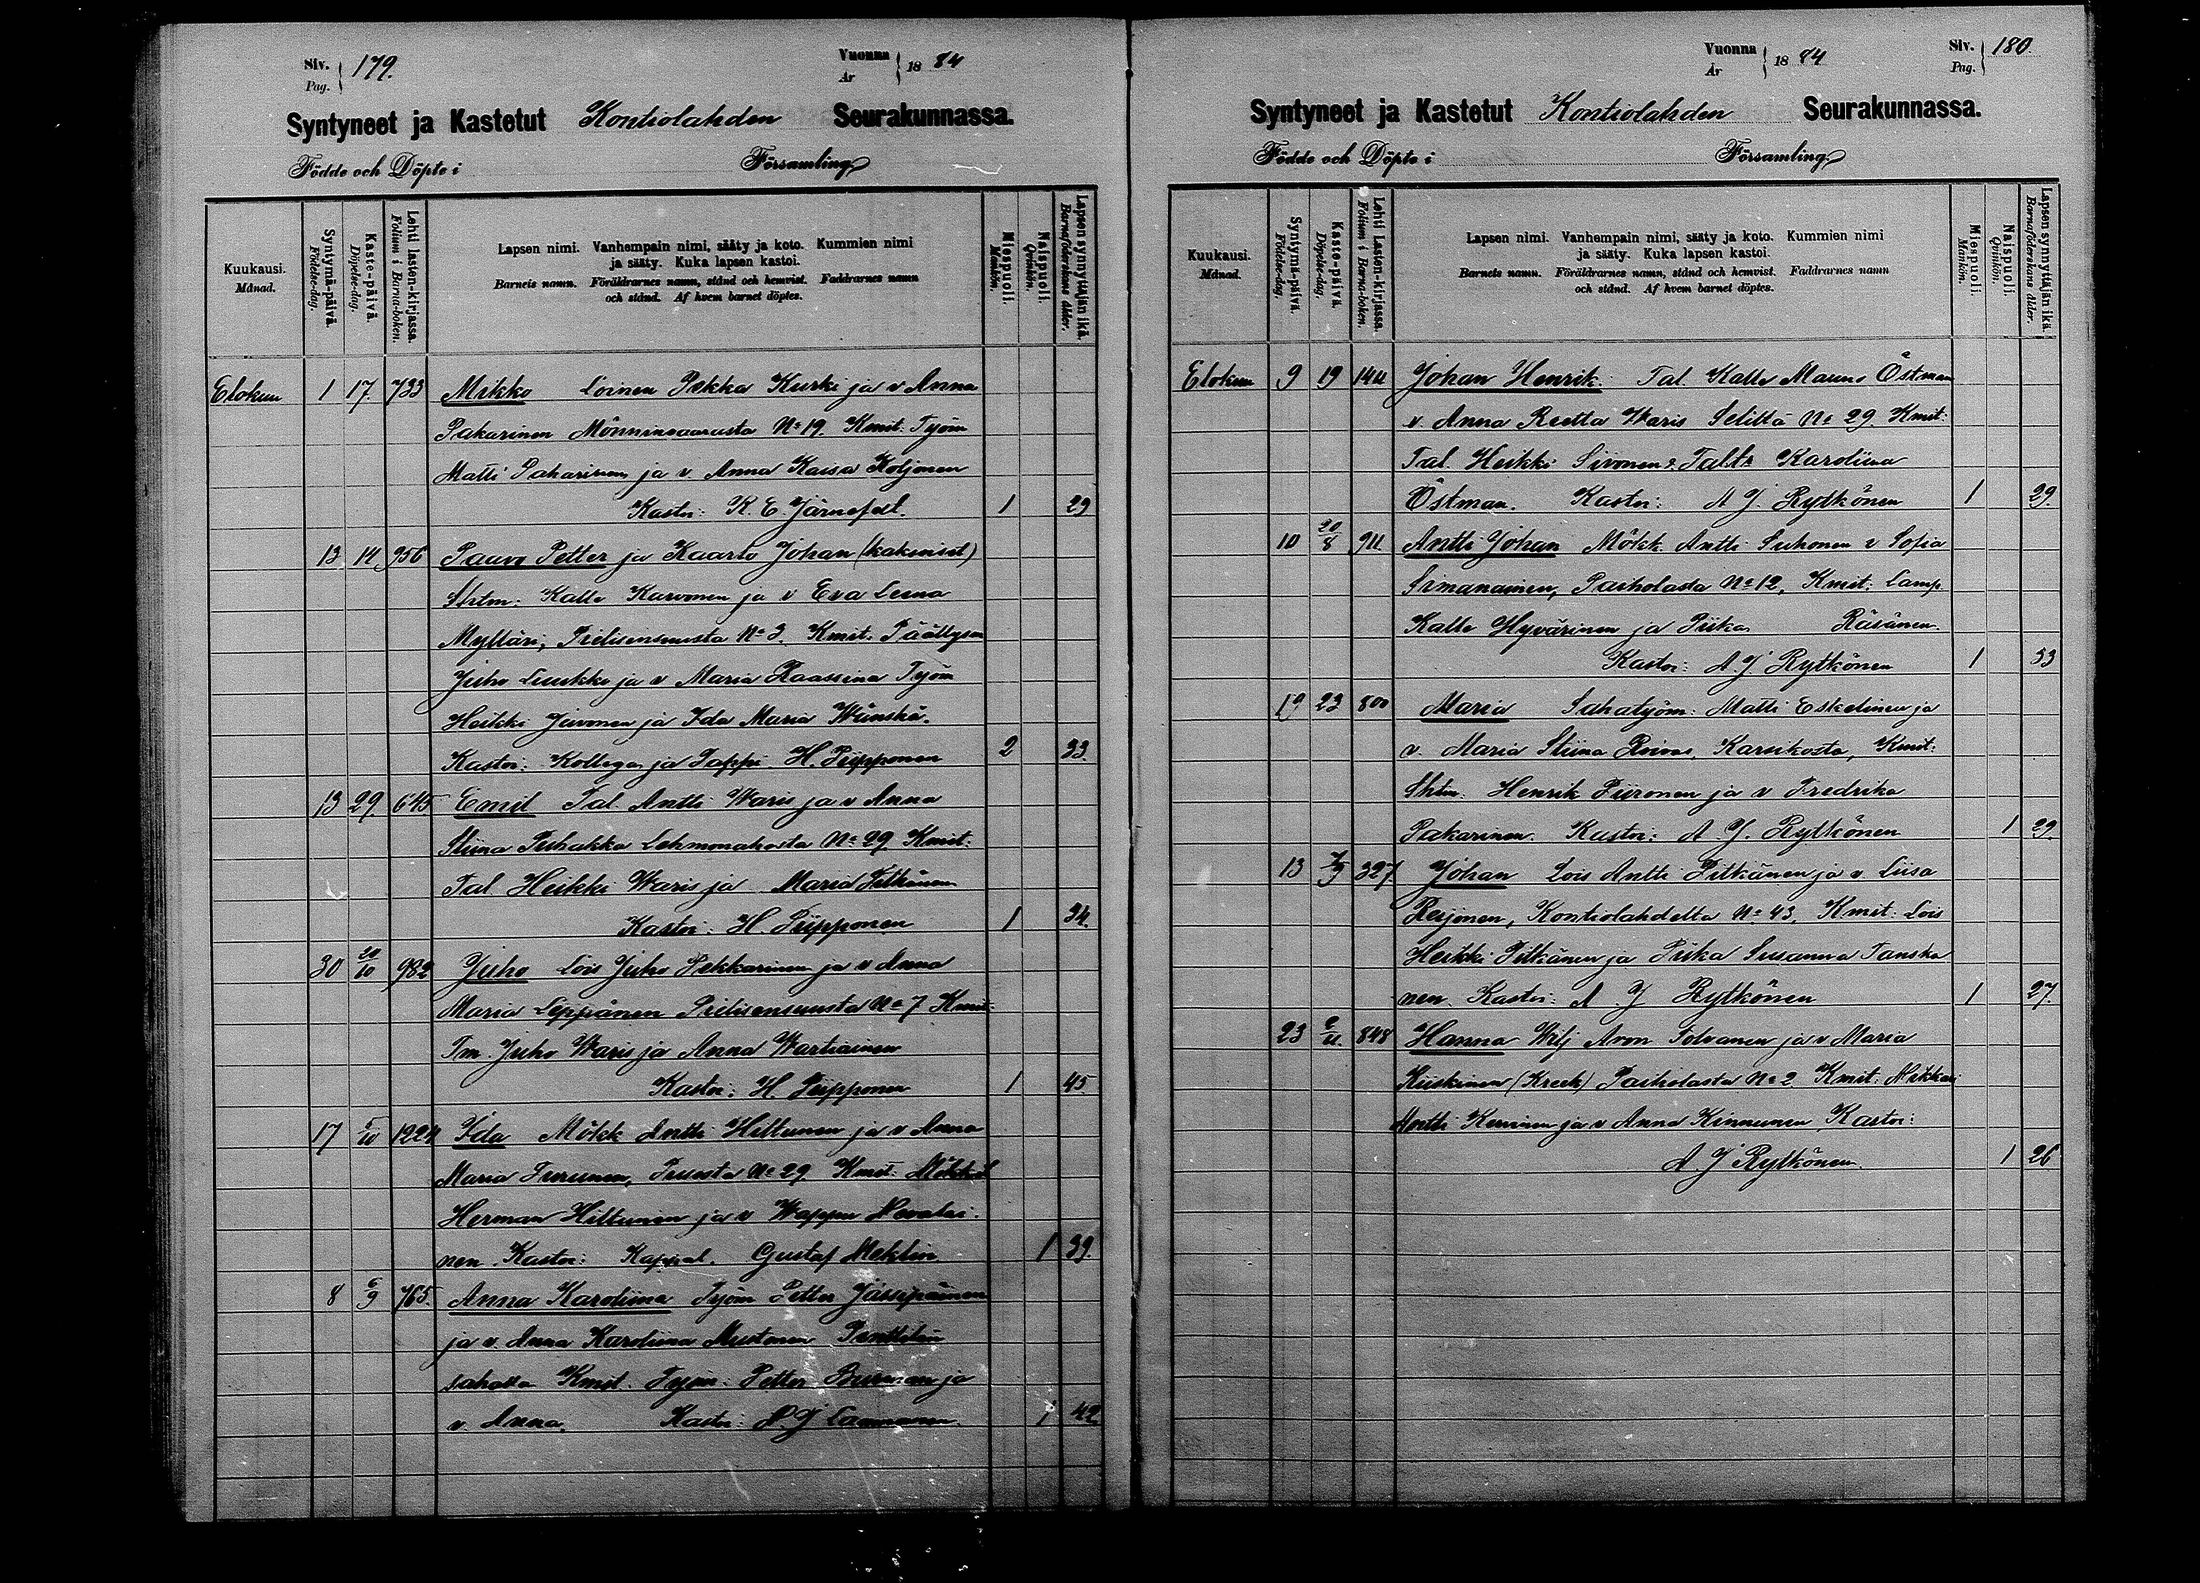 Siv. Pag. 179.
Vuonna År 1884
Syntyneet ja Kastetut Kontiolahden Seurakunnassa.
Födde och Döpte i Församling
Kuukausi. Månad.
Syntymä-päivä. Födelse-dag.
Kaste-päivä. Döpelse-dag.
Lehti lasten-kirjassa. Folium i Barna-boken.
Lapsen nimi. Vanhempain nimi, sääty ja koto. Kummien nimi
ja sääty. Kuka lapsen kastoi.
Barnets namn. Föräldrarnes namn, stånd och hemvist. Faddrarnes namn
och stånd. Af hvem barnet döptes.
Miespuoli. Mankön.
Naispuoli. Qvinkön.
Lapsen synnyttäjän ikä. Barnaföderskans ålder.
Elokuu 1 17. 733 Mikko Loinen Pekka Kurki ja v Anna
Pakarinen Mönninvaarasta No 19. Kmit. Työm
Matti Pakarinen ja v. Anna Kaisa Koljonen
Kastoi: K. E. Järnefelt. 1 29
13 14 956 Paavo Petter ja Kaarlo Johan (kaksoiset)
Shtm: Kalle Karvonen ja v Eva Leena
Mylläri, Pielisensuusta No 3. Kmit.
Juho ja v Maria Raassina Työm
Heikki Juvonen ja Ida Maria
Kastoi: Kollega ja Pappi H. Piipponen 2 33.
13 29. 645 Emil Tal Antti Waris ja v Anna
Stiina Puhakka Lehmonahosta No 29 Kmit:
Tal Heikki Waris ja Maria Pitkänen
Kastoi: H. Piipponen 1 34.
30 29/10 982 Juho Lois Juho Pekkarinen ja v Anna
Maria Leppänen Pielisensuusta No 7 Kmit:
Tm. Juho Waris ja Anna Wartiainen
Kastoi: H. Piipponen 1 45.
17 5/10 1224 Ida Mökk Antti Hiltunen ja v Anna
Maria Turunen, No 29. Kmit: Mökk
Herman Hiltunen ja v Wappu Nevalai-
nen. Kastoi: Kappal. Gustaf Meklin 1 39.
8 6/9 765. Anna Karoliina Työm Petter
ja v. Anna Karoliina Mustonen Penttilän
sahalla Kmit. Työm. Petter ja
v. Anna. Kastoi: 1 42
Vuonna År 1884
Siv. Pag. 180.
Syntyneet ja Kastetut Kontiolahden Seurakunnassa.
Födde och Döpte i Församling
Kuukausi. Månad.
Syntymä-päivä. Födelse-dag.
Kaste-päivä. Döpelse-dag.
Lehti Lasten-kirjassa. Folium i Barna-boken.
Lapsen nimi. Vanhempain nimi, sääty ja koto. Kummien nimi
ja sääty. Kuka lapsen kastoi.
Barnets namn. Föräldrarnes namn, stånd och hemvist. Faddrarnes namn
och stånd. Af hvem barnet döptes.
Miespuoli. Mankön.
Naispuoli. Qvinkön.
Lapsen synnyttäjän ikä. Barnaföderskans ålder.
Elokuu 9 19 Johan Henrik. Tal. Kalle Mauns Östman
v Anna Reetta Waris Seliltä No 29. Kmit:
Tal. Heikki Sivonen Karoliina
Östman. Kastoi: A J. Rytkönen 1 29.
10 20/8 Antti Johan Mökk. Antti Suhonen v Sofia
Simanainen, Paiholasta No 12, Kmit: Lamp.
Kalle Hyvärinen ja Piika Räsänen.
Kastoi: A. J. Rytkönen 1 33
19 23 800 Maria Sahatyöm: Matti Eskelinen ja
v. Maria Stiina Roivas, Karsikosta, Kmit:
Shtm. Henrik Piironen ja v Fredrika
Pakarinen. Kastoi: A. J. Rytkönen 1 29.
13 7/9 327 Johan Lois Antti Pitkänen ja v. Liisa
Reijonen, Kontiolahdelta No 43, Kmit: Lois
Heikki Pitkänen ja Piika Susanna Tanska
nen. Kastoi: A. J Rytkönen 1 27.
23 848 Hanna Wilj Aron Tolvanen ja v Maria
Kiiskinen (Kreek) Paiholasta No 2 Kmit:
Antti ja v Anna Kinnunen Kastoi:
A. J Rytkönen. 1 26